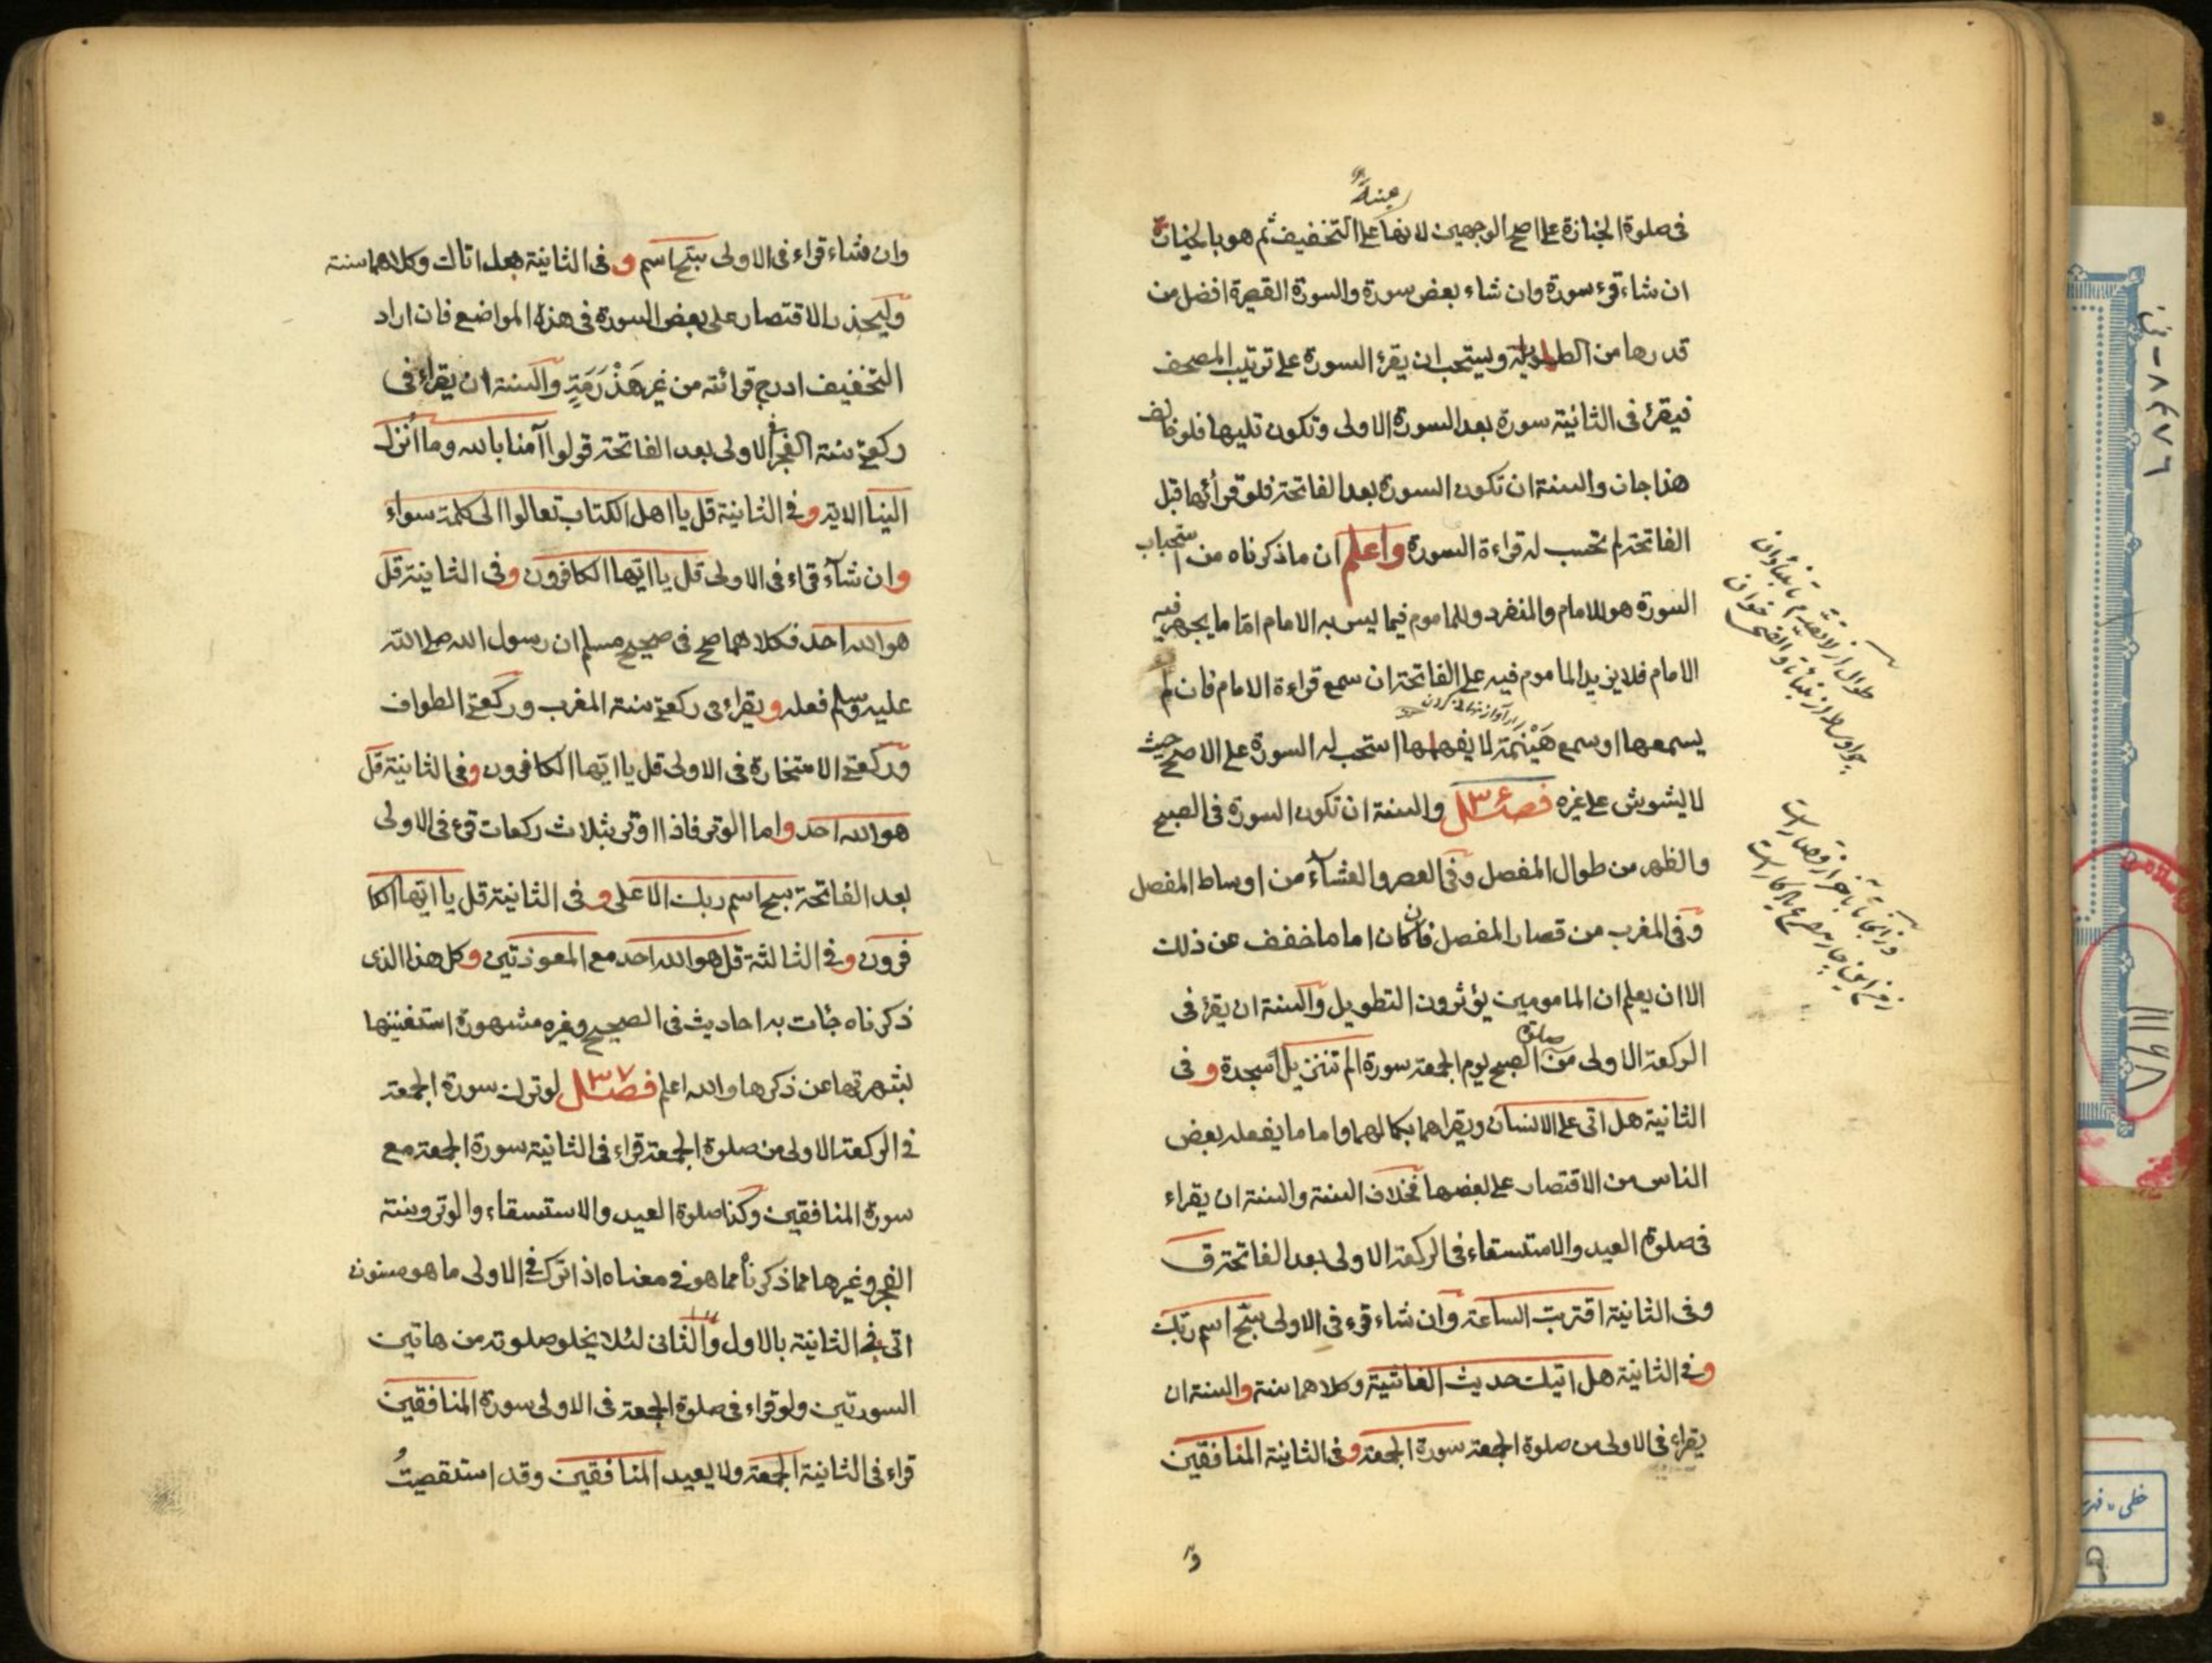 مبنية
فى صلوة الجنازة على اصح الوجهين لانها على التخفيف ثم هو بالخيار
ان شاء قرء سورة وان شاء بعض سورة والسورة القصيرة افضل من
قدرها من الطويلة ويستحب ان يقرء السورة على ترتيب المصحف
فيقرء فى الثانية سورة بعد السورة الاولى وتكون تليها فلو خالف
هذا جاز والسنة ان تكون السورة بعد الفاتحة فلو قرأها قبل
الفاتحة لم تحسب له قراءة السورة واعلم ان ما ذكرناه من استحباب
السورة هو للامام والمنفرد وللماموم فيما يسر به الامام اما ما يجهر فيه
الامام فلا يزيد الماموم فيه على الفاتحة ان سمع قراءة الامام فان لم
يسمعها او سمع هَيْنَمَة لا يفهمها استحب له السورة على الاصح حيث
لا يشوش على غيره فصل ٣٤ والسنة ان تكون السورة فى الصبح
والظهر من طوال المفصل وفى العصر والعشآء من اوساط المفصل
وفى المغرب من قصار المفصل فان كان اماما خفف عن ذلك
الا ان يعلم ان المامومين يؤثرون التطويل والسنة ان يقرء فى
الركعة الاولى من صلوة الصبح يوم الجمعة سورة الم تنزيل السجدة وفى
الثانية هل اتى على الانسان ويقراهما بكمالهما واما ما يفعله بعض
الناس من الاقتصار على بعضها فخلاف السنة والسنة ان يقراء
فى صلوة العيد والاستسقاء فى الركعة الاولى بعد الفاتحة ق
وفى الثانية اقتربت الساعة وان شاء قرء فى الاولى سبّح اسم ربّك
وفى الثانية هل اتيك حديث الغاشية وكلاهما سنة والسنة ان
يقراء فى الاولى من صلوة الجمعة سورة الجمعة وفى الثانية المنافقين
وان شاء قراء فى الاولى سبّح اسم وفى الثانية هل اتاك وكلاهما سنة
وليحذر الاقتصار على بعض السورة فى هذه المواضع فان اراد
التخفيف ادرج قرائته من غير هَذْرَمَةٍ والسنة ان يقراء فى
ركعتى سنة الفجر فى الاولى بعد الفاتحة قولوا آمنا بالله وما اُنزل
الينا الاية وفى الثانية قل يا اهل الكتاب تعالوا الى كلمة سواء
وان شآء قراء فى الاولى قل يا ايّها الكافرون وفى الثانية قل
هو الله احد فكلاهما صح فى صحيح مسلم ان رسول الله صلى الله
عليه وسلم فعله ويقراء فى ركعتى سنة المغرب وركعتى الطواف
وركعتى الاستخارة فى الاولى قل يا ايّها الكافرون وفى الثانية قل
هو الله احد واما الوتر فاذا اوتر بثلاث ركعات قرء فى الاولى
بعد الفاتحة سبح اسم ربك الاعلى وفى الثانية قل يا ايّها الكا
فرون وفى الثالثة قل هو الله احد مع المعوذتين وكل هذا الذى
ذكرناه جائت به احاديث فى الصحيح وغيره مشهورة استغنينا
بشهرتها عن ذكرها والله اعلم فصل ٣٧ لو ترك سورة الجمعة
فى الركعة الاولى من صلوة الجمعة قراء فى الثانية سورة الجمعة مع
سورة المنافقين وكذا صلوة العيد والاستسقاء والوتر وسنة
الفجر وغيرها مما ذكرنا مما هو فى معناه اذا ترك فى الاولى ما هو مسنون
اتى فى الثانية بالاول والثانى لئلا يخلو صلوته من هاتين
السورتين ولو قراء فى صلوة الجمعة فى الاولى سورة المنافقين
قراء فى الثانية الجمعة ولا يعيد المنافقين وقد استقصيتُ